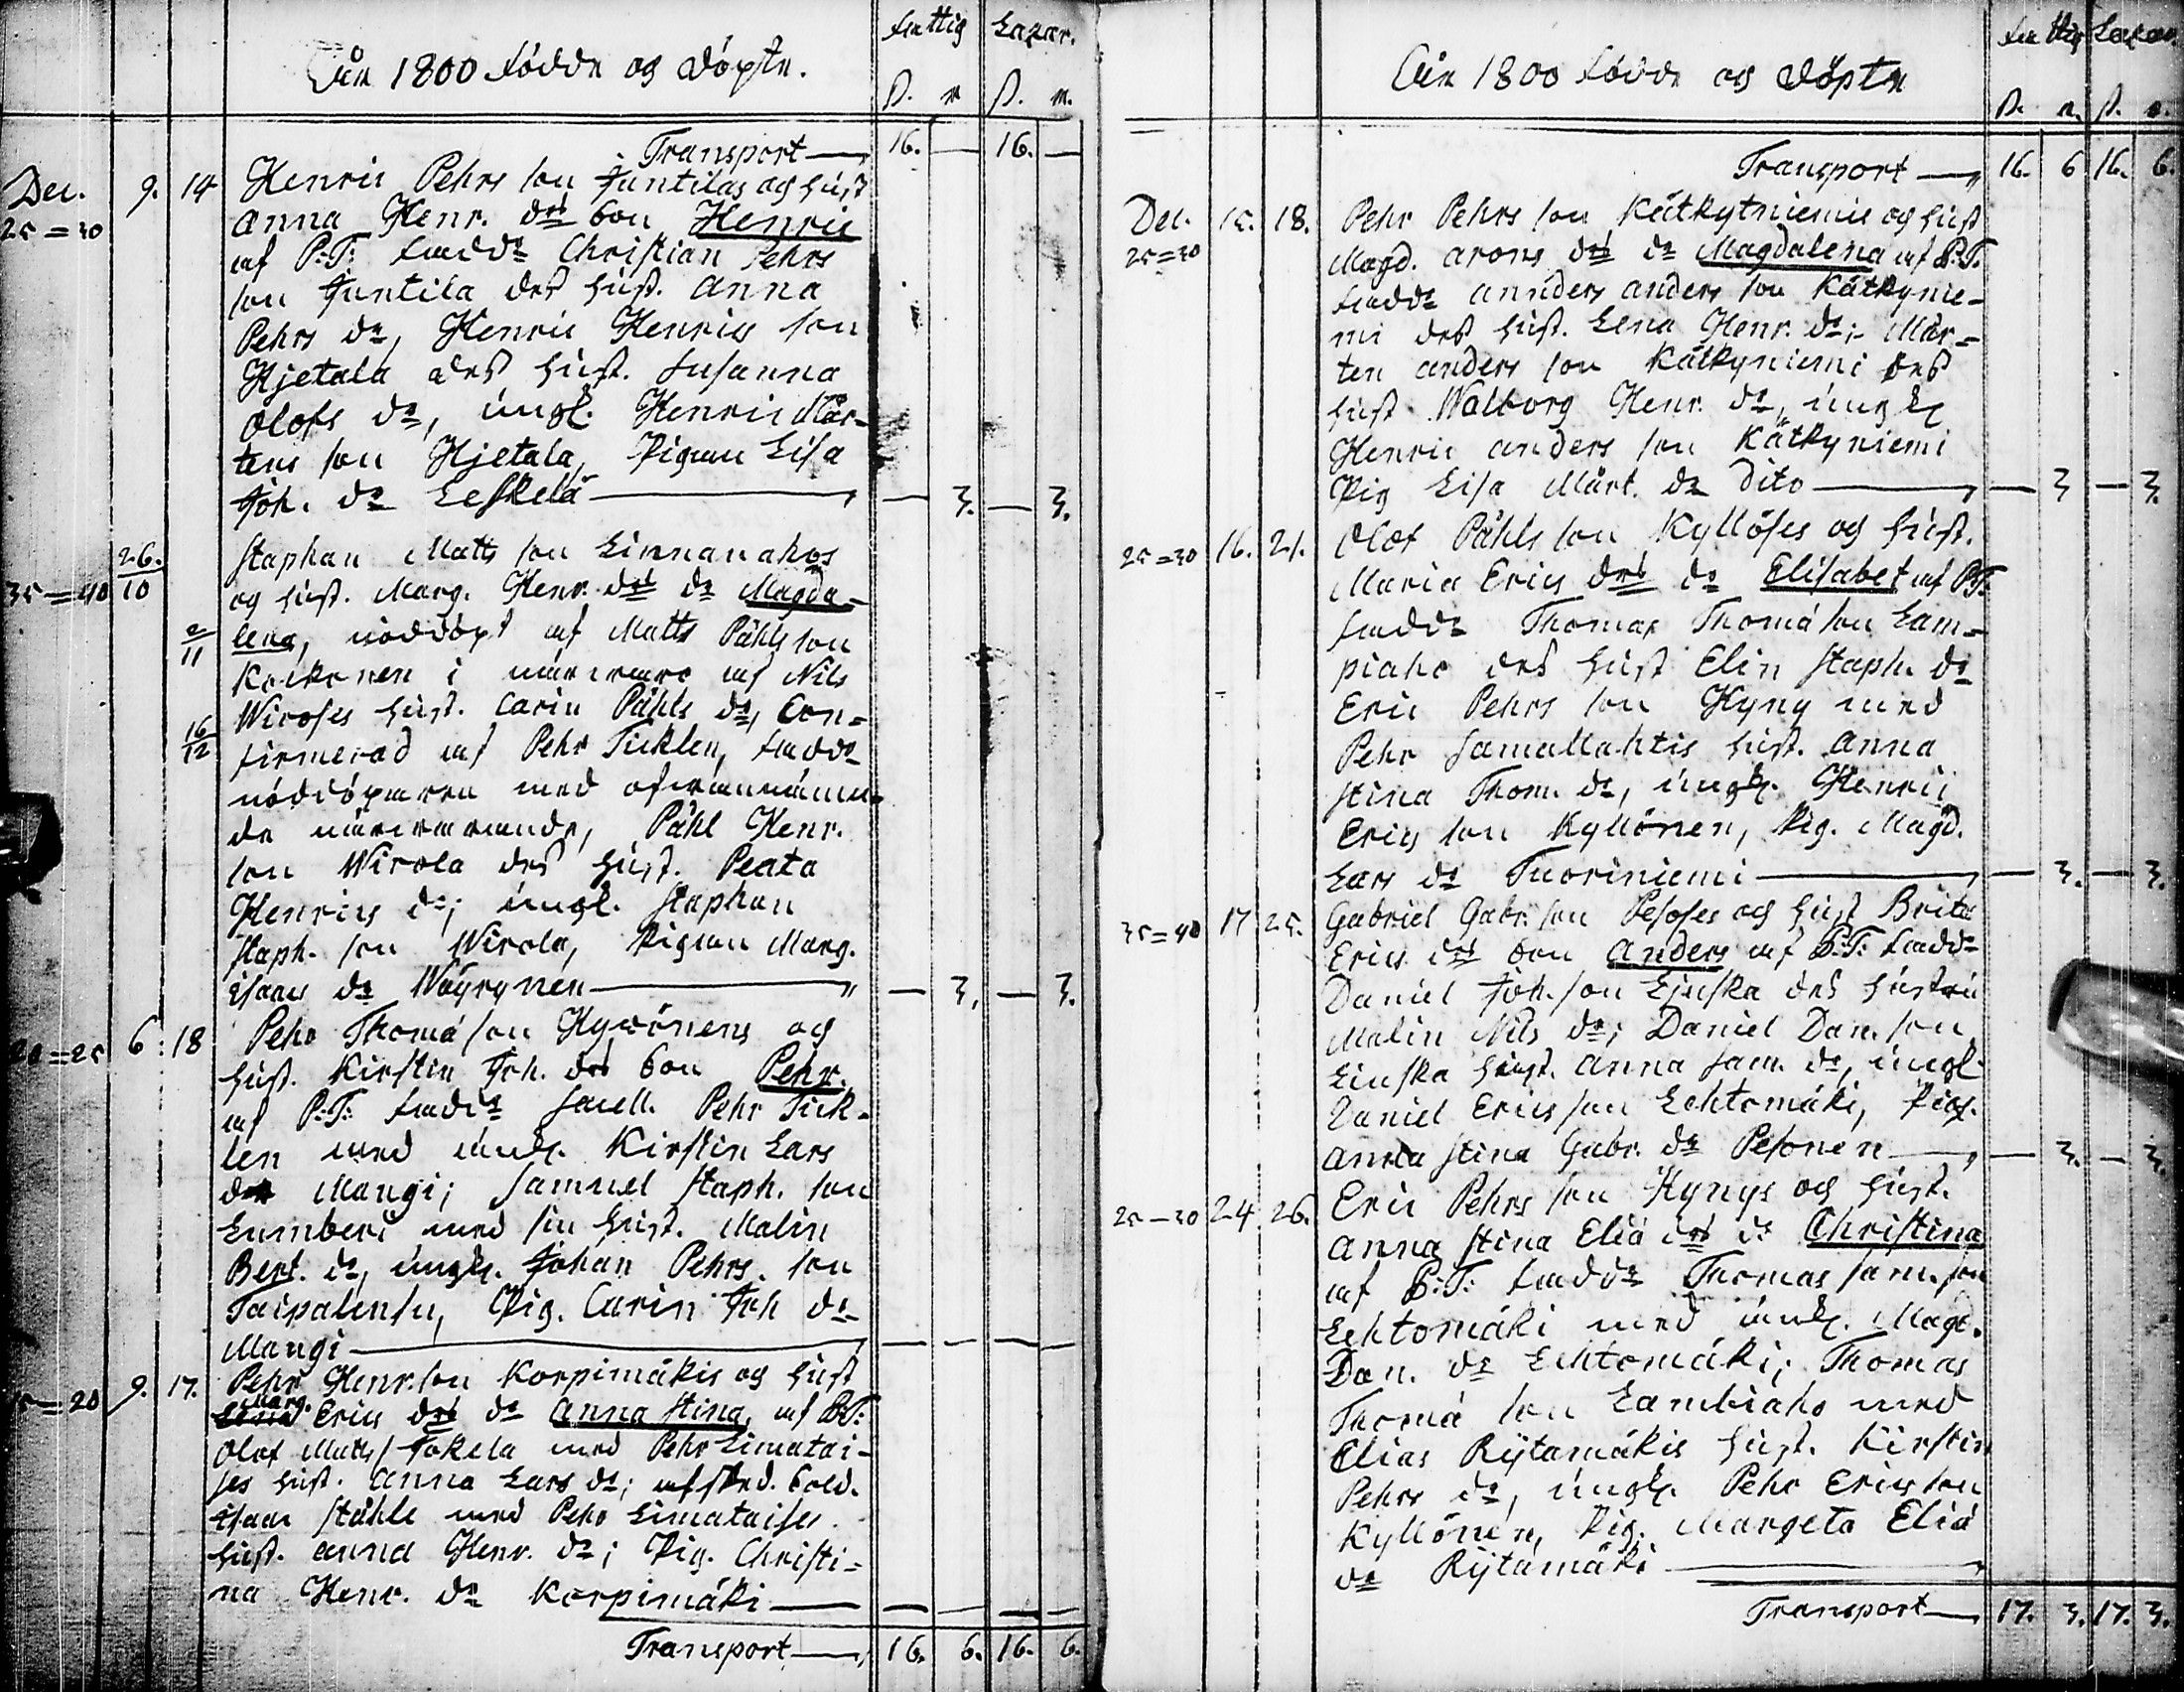 Fattig Lazar.
Åhr 1800 födde og döpte.
ß. r ß. r.
Transport — 16. — 16. —
Dec. 9. 14 Henric Pehrs son Juntilas og hust
25=30 Anna Henr. drs son Henric
af P:T: fadd: Christian Pehrs
son Juntila des hust. Anna
Pehrs dr, Henric Henrics son
Hjetala des hust. Susanna
Olofs dr, ungk. Henric Mår-
tens son Hjetala, Pigan Lisa
Joh. dr Leskelä — — 3. — 3.
26. Staphan Matts son Linnanahos
35=40 10 og hust. Marg. Henr. drs dr Magda-
2/11 lena, nöddöpt af Matts Påhls son
Kockonen i närvaro af Nils
Wiroses hust. Carin Påhls dr, Con-
16/12 firmerad af Pehr Ticklen, fadd:
nöddöparen med ofvannämn-
de närvarande, Påhl Henr.
son Wirola des hust. Beata
Henrics dr; ungk. Staphan
Staph. son Wirola, Pigan Marg.
Isaacs dr Wäyrynen — — 3. — 3.
20=25 6: 18 Pehr Thomä son Hyvönens og
hust. Kirstin Joh. drs son Pehr.
af P:T: fadd: Pehr Tick-
len med enk. Kirstin Lars
dr Mangi; Samuel Staph. son
Lumberi med sin hust. Malin
Bert. dr, ungk. Johan Pehrs. son
Taipalensu, Pig. Carin Joh dr
Mangi — — — — —
=20 9. 17. Pehr Henr. son Korpimäkis og hust
Marg. Erics drs dr Anna Stina, af P:T:
Olof Matts Jokela med Pehr Limatai-
ses hust. Anna Lars dr; afsked. sold.
Isaac Ståhle med Pehr Limataises
hust. Anna Henr. dr; Pig. Christi-
na Henr. dr Korpimäki — — — — —
Transport — 16. 6. 16. 6.
Fattig Lazar
Åhr 1800 födde og döpte
ß. r. ß. r.
Transport — 16. 6 16. 6.
Dec. 15. 18. Pehr Pehrs son Kätkytniemis og hust
25=30 Magd. Arons drs dr Magdalena af P:T.
fadd: Anders Anders son Kätkynie-
mi des hust. Lena Henr. dr; Mår-
ten Anders son Kätkyniemi des
hust. Walborg Henr. dr, ungk
Henric Anders son Kätkyniemi
Pig Lisa Mårt. dr Dito — — 3 — 3.
25=30 16. 21. Olof Påhls son Kyllöses og hust.
Maria Erics drs dr Elisabet af P:T:
fadd: Thomas Thomä son Lam-
piaho des hust Elin Staph. dr
Eric Pehrs son Hyny med
Pehr Jamallahtis hust. Anna
Stina Thom. dr, ungk. Henric
Erics son Kyllönen, Pig. Magd.
Lars dr Tuoriniemi — — 3. — 3.
35=40 17 25. Gabriel Gabr. son Pesoses og hust Brita
Erics drs son Anders af P:T: fadd:
Daniel Joh. son Linska des hustru
Malin Nils dr; Daniel Dan. son
Linska hust. Anna Sam. dr, ungk
Daniel Erics son Lehtomäki, Pig.
Anna Stina Gabr. dr Pesonen — — 3. — 3.
25=30 24 26. Eric Pehrs son Hynys og hust.
Anna Stina Eliä drs dr Christina
af P:T: fadd: Thomas Sam. son
Lehtomäki med enk. Magd.
Dan. dr Lehtomäki; Thomas
Thomä son Lambiaho med
Elias Rytämäkis hust. Kirstin
Pehrs dr, ungk. Pehr Erics son
Kyllönen, Pig. Margeta Eliä
dr Rytämäki —
Transport — 17. 3. 17. 3.